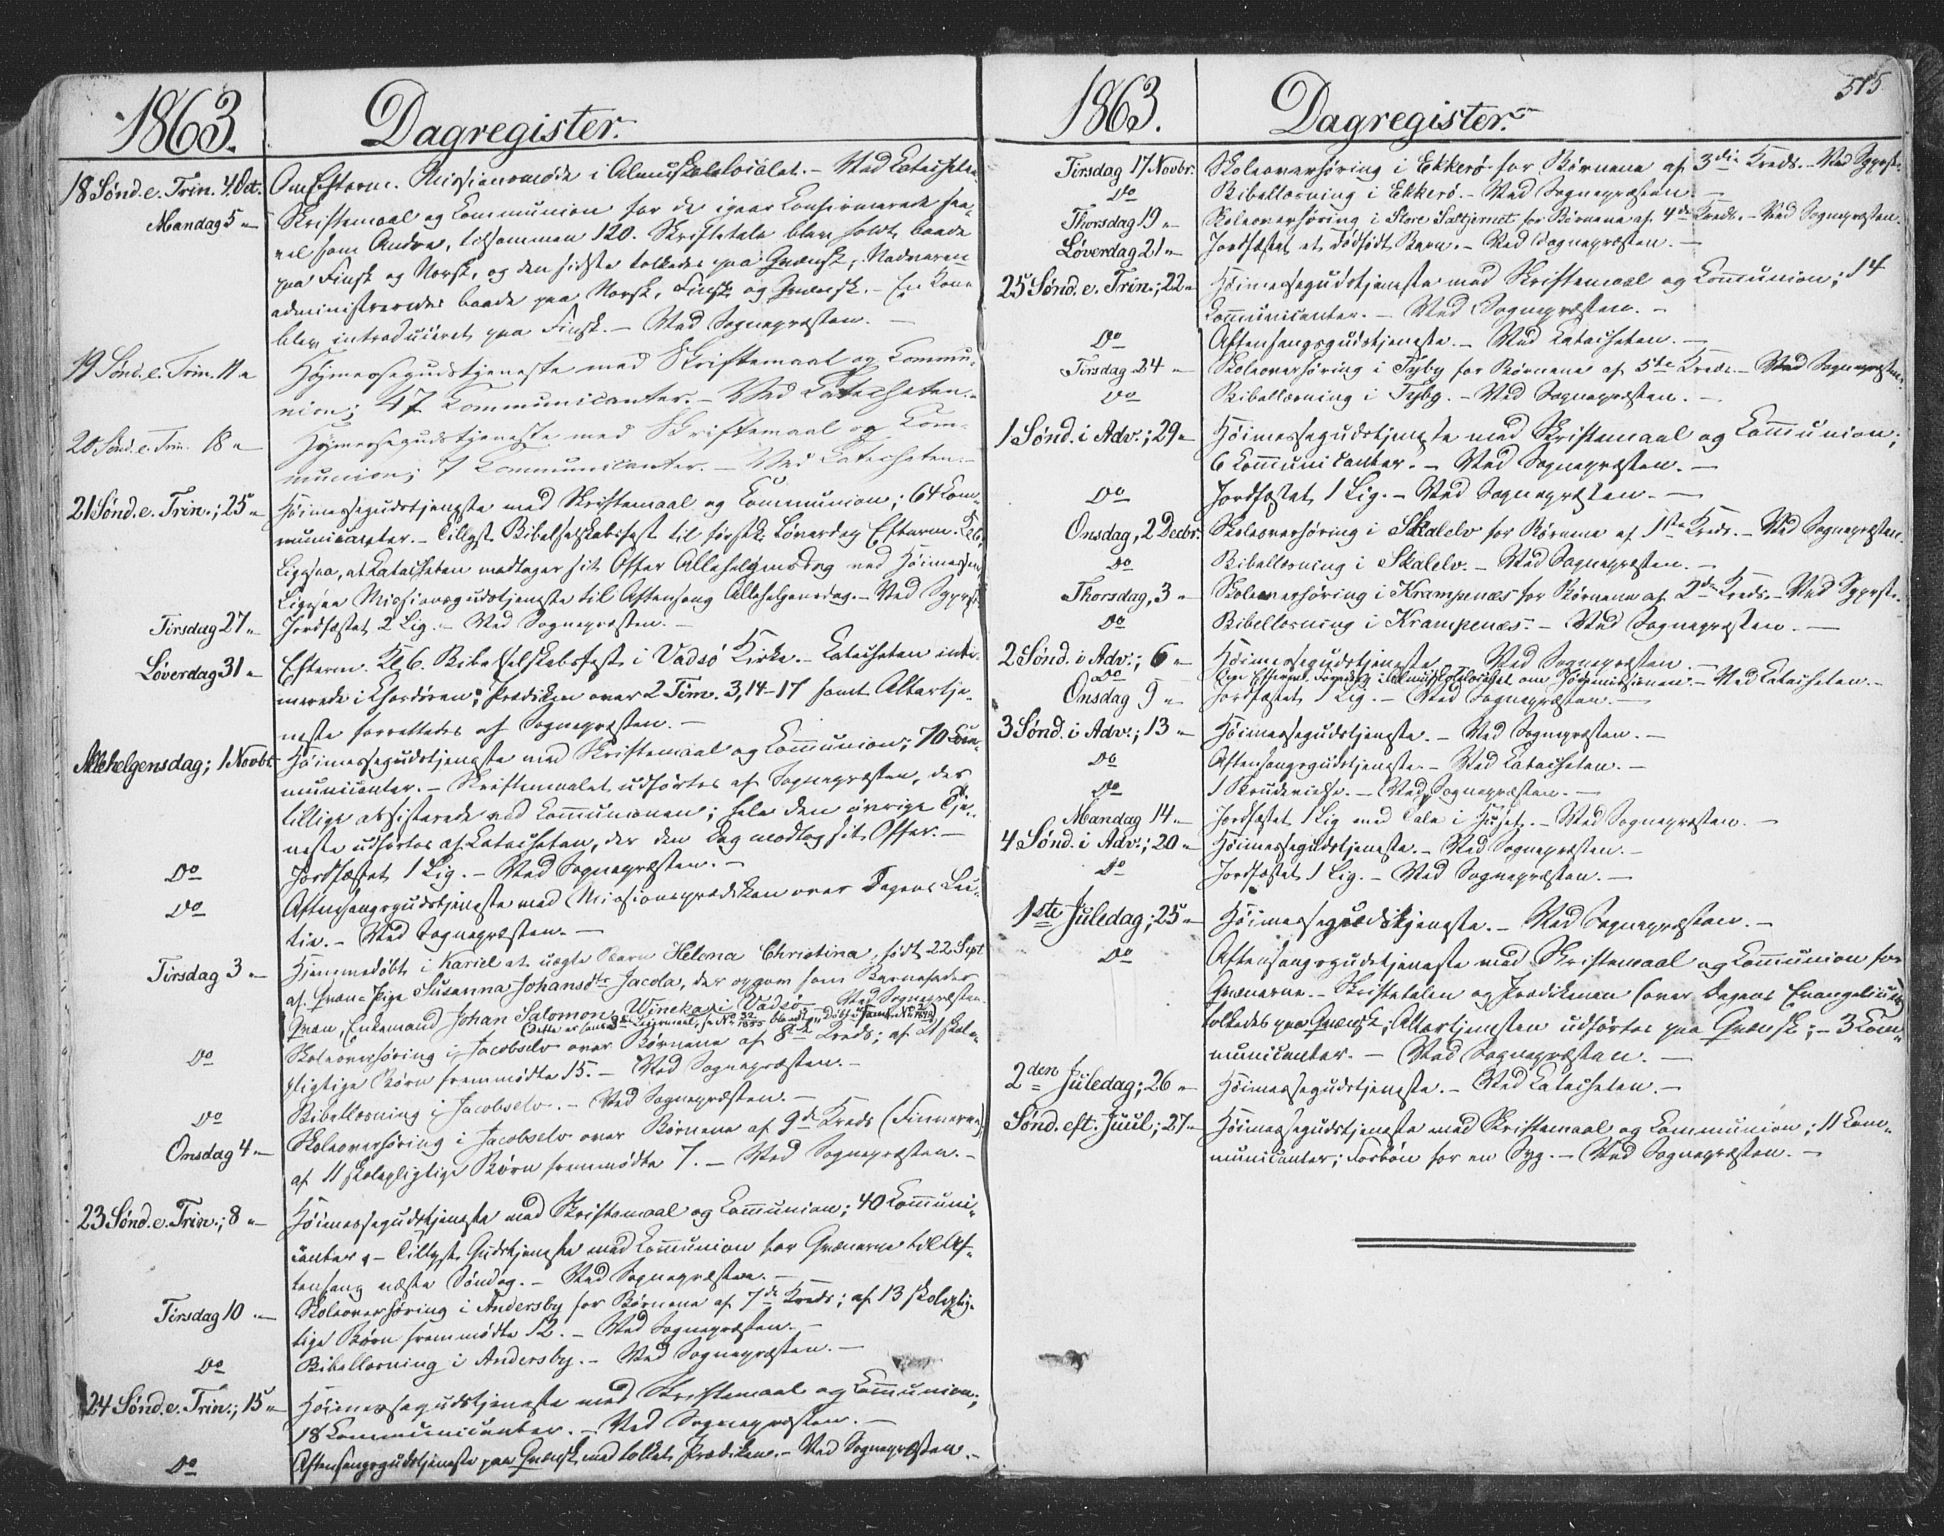 1863.
Dagregister.
18 Sønd. e. Trin. 4 Oct.
Om Efterm. Missionsmøde i Almuskolelocalet. – Ved Catecheten.
Mandag 5 "
Skriftemaal og Communion for de igaar Confirmerede saa-
vel som Andre, tilsammen 120. Skriftetale blev holdt baade
paa Finsk og Norsk, og den sidste tolkedes paa Qvænsk, Nadveren
administreredes baade paa Norsk, Finsk og Qvænsk. – En Kone
blev introduceret paa Finsk. – Ved Sognepræsten. –
19 Sønd. e. Trin. 11 "
Høimessegudstjeneste med Skriftemaal og Commu-
nion; 47 Communicanter. – Ved Catecheten. –
20 Sønd. e. Trin. 18 "
Høimessegudstjeneste med Skriftemaal og Com-
munion; 7 Communicanter. – Ved Catecheten. –
21 Sønd. e. Trin.; 25 "
Høimessegudstjeneste med Skriftemaal og Communion; 64 Com-
municanter. – Tillyst Bibelselskabsfest til førstk. Løverdag Efterm. Kl. 6,
Ligesaa, at Catecheten modtager sit Offer Allehelgensdag ved Høimessen,
Ligesaa Missionsgudstjeneste til Aftensang Allehelgensdag. – Ved Sgprst.
Tirsdag 27 "
Jordfæstet 2 Lig. – Ved Sognepræsten. –
Løverdag 31 "
Efterm. Kl. 6. Bibelselskabsfest i Vadsø Kirke. – Catecheten inti-
merede i Chordøren; Prædiken over 2 Tim. 3,14-17 samt Altertje-
neste forrettedes af Sognepræsten. –
Allehelgensdag; 1 Novbr.
Høimessegudstjeneste med Skriftemaal og Communion; 70 Com-
municanter. – Skriftemaalet udførtes af Sognepræsten, der
tillige assisterede ved Communionen; hele den øvrige Tje-
neste udførtes af Catecheten, der den Dag modtog sit Offer. –
Do
Jordfæstet 1 Lig. – Ved Sognepræsten. –
Do
Aftensangsgudstjeneste med Missionsprædiken over Dagens Lec-
tie. – Ved Sognepræsten. –
Tirsdag 3 "
Hjemmedøbt i Kariel et uægte Barn Helena Christina, født 22 Sept
af Qvæn-Pige Susanna Johansdtr Jacola, der opgav som Barnefader
Qvæn, Enkemand Johan Salomon Wineka i Vadsø – Ved Sognepræsten
Do
Skoleoverhøring i Jacobselv over Børnene af 8de Kreds; af 21 skole-
pligtige Børn fremmødte 15. – Ved Sognepræsten. –
Do
Bibellæsning i Jacobselv. – Ved Sognepræsten. –
Onsdag 4 "
Skoleoverhøring i Jacobselv over Børnene af 9de Kreds (Finnerne)
af 11 skolepligtige Børn fremmødte 7. – Ved Sognepræsten. –
23 Sønd. e. Trin.; 8 "
Høimessegudstjeneste med Skriftemaal og Communion; 40 Communi-
canter. – Tillyst Gudstjeneste med Communion for Qvænerne til Af-
tensang næste Søndag. – Ved Sognepræsten. –
Tirsdag 10 "
Skoleoverhøring i Andersby for Børnene af 7de Kreds; af 13 skoleplig-
tige Børn fremmødte 12. – Ved Sognepræsten. –
Do
Bibellæsning i Andersby. – Ved Sognepræsten. –
24 Sønd. e. Trin.; 15 "
Høimessegudstjeneste med Skriftemaal og Communion;
18 Communicanter. – Ved Sognepræsten. –
Do
Aftensangsgudstjeneste paa Qvænsk med tolket Prædiken. – Ved Sognepræsten. –
515
1863.
Dagregister.
Tirsdag 17 Novbr.
Skoleoverhøring i Ekkerø for Børnene af 3die Kreds. – Ved Sgprst.
Do
Bibellæsning i Ekkerø. – Ved Sognepræsten. –
Thorsdag 19 "
Skoleoverhøring i Store Saltjernet for Børnene af 4de Kreds. – Ved Sognepræsten.
Løverdag 21 "
Jordfæstet et dødfødt Barn. – Ved Sognepræsten. –
25 Sønd. e. Trin.; 22 "
Høimessegudstjeneste med Skriftemaal og Communion; 14
Communicanter. – Ved Sognepræsten. –
Do
Aftensangsgudstjeneste. – Ved Catecheten. –
Tirsdag 24 "
Skoleoverhøring i Tyby for Børnene af 5te Kreds. – Ved Sognepræsten.
Do
Bibellæsning i Tyby. – Ved Sognepræsten. –
1 Sønd. i Adv.; 29 "
Høimessegudstjeneste med Skriftemaal og Communion;
6 Communicanter. – Ved Sognepræsten. –
Do
Jordfæstet 1 Lig. – Ved Sognepræsten. –
Onsdag, 2 Decbr.
Skoleoverhøring i Skalelv for Børnene af 1ste Kreds. – Ved Sognepræsten.
Do
Bibellæsning i Skalelv. – Ved Sognepræsten. –
Thorsdag, 3 "
Skoleoverhøring i Krampenæs for Børnene af 2de Kreds. – Ved Sgprst.
Do
Bibellæsning i Krampenæs. – Ved Sognepræsten. –
2 Sønd. i Adv.; 6 "
Høimessegudstjeneste. Ved Sognepræsten. –
Do
i Almuskolelocalet om Jødemissionen. – Ved Catecheten. –
Onsdag 9 "
Jordfæstet 1 Lig. – Ved Sognepræsten. –
3 Sønd. i Adv.; 13 "
Høimessegudstjeneste. – Ved Sognepræsten. –
Do
Aftensangsgudstjeneste. – Ved Catecheten. –
Do
1 Ved Sognepræsten. –
Mandag 14 "
Jordfæstet 1 Lig med Tale i Huset. – Ved Sognepræsten. –
4 Sønd. i Adv.; 20 "
Høimessegudstjeneste. – Ved Sognepræsten. –
Do
Jordfæstet 1 Lig. – Ved Sognepræsten. –
1ste Juledag; 25 "
Høimessegudstjeneste. – Ved Sognepræsten. –
Do
Aftensangsgudstjeneste med Skriftemaal og Communion for
Qvænerne. – Skriftetalen og Prædikenen (over Dagens Evangelium)
tolkedes paa Qvænsk; Altertjenesten udførtes paa Qvænsk; – 3 Com-
municanter. – Ved Sognepræsten. –
2den Juledag; 26 "
Høimessegudstjeneste. – Ved Catecheten. –
Sønd. eft. Juul; 27 "
Høimessegudstjeneste med Skriftemaal og Communion; 11 Com-
municanter; Forbøn for en Syg. – Ved Sognepræsten. –